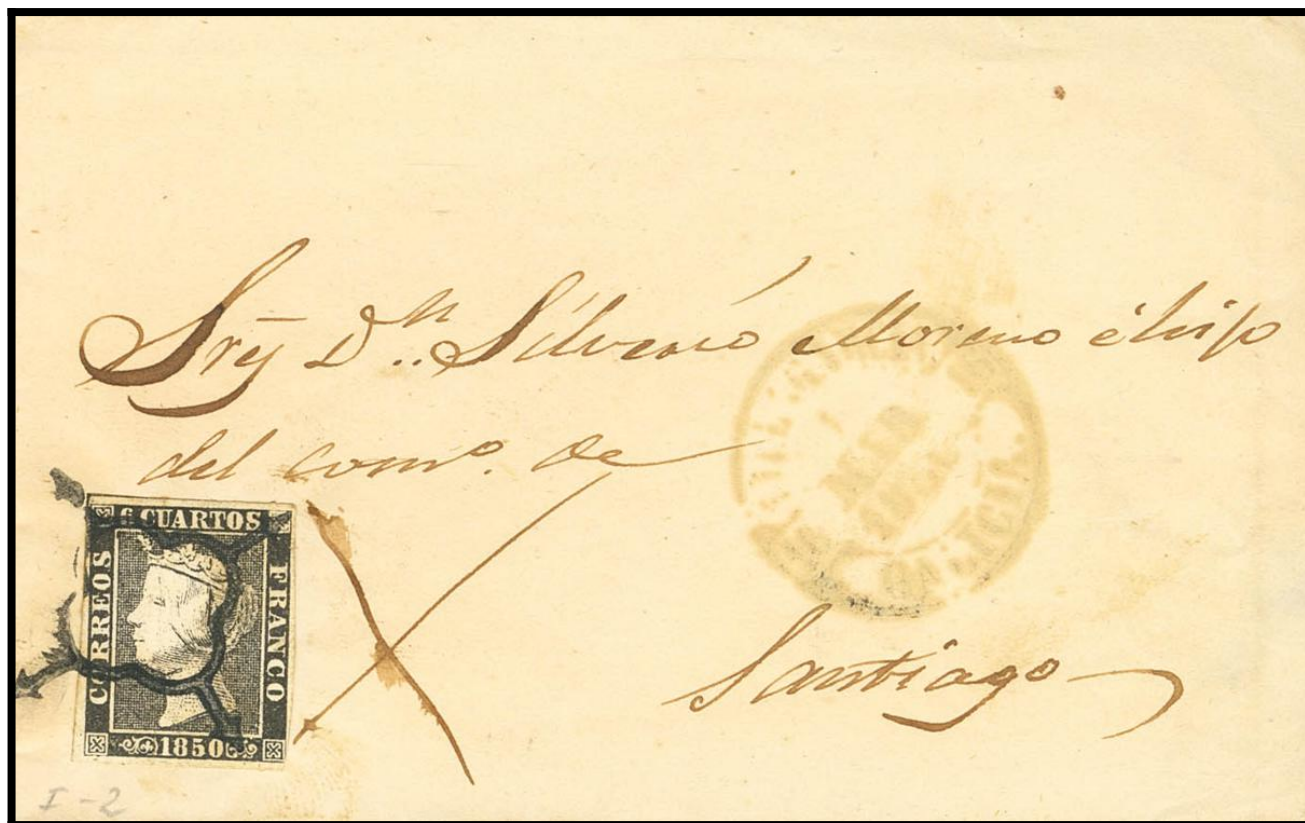 Sres Dn. Silverio Moreno é hijo
del comº. de
Santiago
6 CUARTOS
CORREOS
FRANCO
1850
I-2